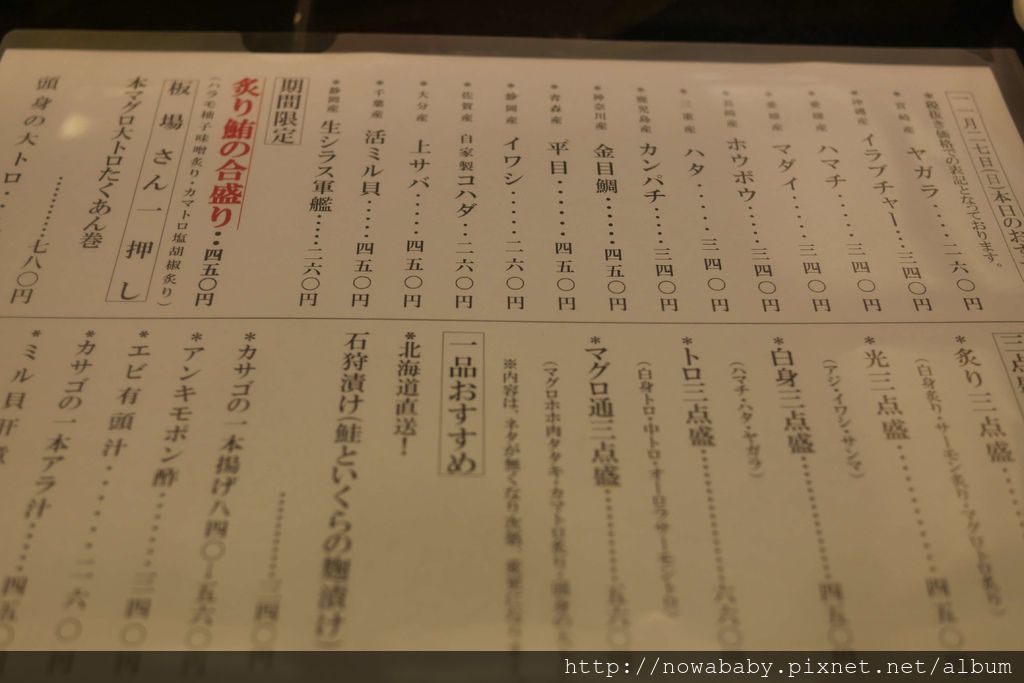 二月二七日(日)本日のおす
*税抜き価格での表記となっております。
*宮崎産 ヤガラ・・・・二六〇円
*沖縄産 イラブチャー・・・三四〇円
*愛媛産 ハマチ・・・・三四〇円
*愛媛産 マダイ・・・・三四〇円
*長崎産 ホウボウ・・・・三四〇円
*三重産 ハタ・・・・・三四〇円
*鹿児島産 カンパチ・・・・三四〇円
*神奈川産 金目鯛・・・・・四五〇円
*青森産 平目・・・・・・四五〇円
*静岡産 イワシ・・・・・二六〇円
*佐賀産 自家製コハダ・・二六〇円
*大分産 上サバ・・・・・四五〇円
*千葉産 活ミル貝・・・・・四五〇円
*静岡産 生シラス軍艦・・・・二六〇円
期間限定
炙り鮪の合盛り・・四五〇円
(ハラモ柚子味噌炙り・カマトロ塩胡椒炙り)
板場さん一押し
本マグロ大トロたくあん巻
・・・・・・・・・七八〇円
頭身の大トロ・・
三点
*炙り三点盛・・・・
(白身炙り・サーモン炙り・マグロトロ炙り)
*光三点盛・・・・・・・・四五〇
(アジ・イワシ・サンマ)
*白身三点盛・・・・・・・・四五〇
(ハマチ・ハタ・ヤガラ)
*トロ三点盛・・・・・・・・六八〇
(白身トロ・中トロ・オーロラサーモントロ)
*マグロ通三点盛・・・・・・五八〇
(マグロホホ肉タタキ・カマトロ炙り・頭身の
※内容は、ネタが無くなり次第、変更になり
一品おすすめ
*北海道直送!
石狩漬け(鮭といくらの麹漬け)
・・・・・・・・・三四〇
*カサゴの一本揚げ八四〇~五六〇
*アンキモポン酢・・・・・・三四〇
*エビ有頭汁・・・・・・二六〇
*カサゴの一本アラ汁・・・・・四五〇
*ミル貝肝煮
http://nowababy.pixnet.net/album